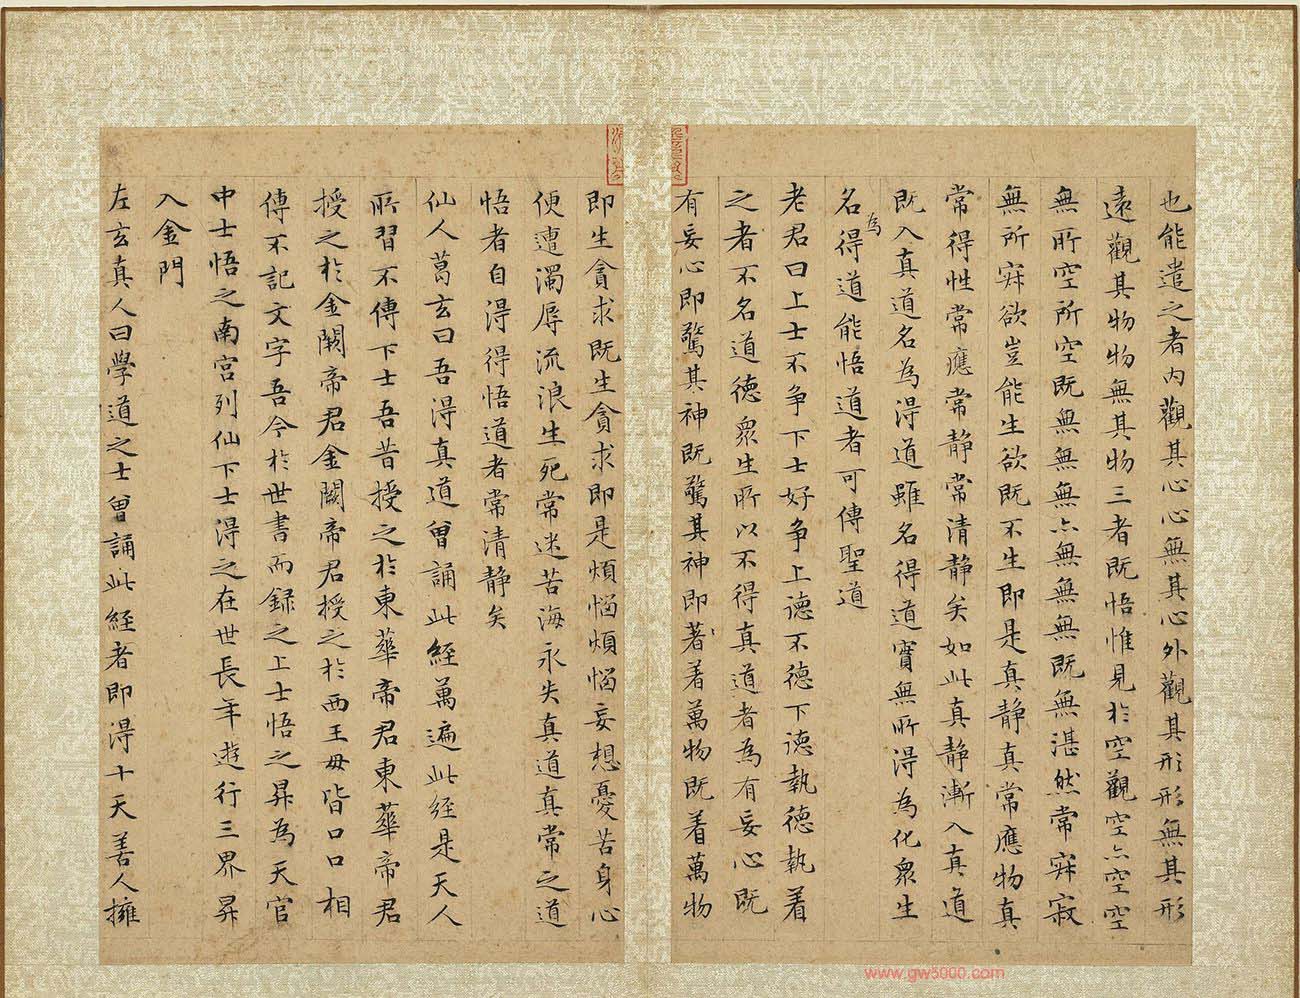 也能遣之者内觀其心心無其心外觀其形形無其形
遠觀其物物無其物三者既悟惟見於空觀空亦空空
無所空所空既無無無亦無無無既無湛然常寂寂
無所寂欲豈能生欲既不生即是真静真常應物真
常得性常應常静常清静矣如此真静漸入真道
既入真道名為得道雖名得道實無所得為化衆生
名為得道能悟道者可傳聖道
老君曰上士不争下士好争上德不德下德執德執着
之者不名道德衆生所以不得真道者為有妄心既
有妄心即驚其神既驚其神即著着萬物既着萬物
即生貪求既生貪求即是煩惱煩惱妄想憂苦身心
便遭濁辱流浪生死常迷苦海永失真道真常之道
悟者自得得悟道者常清静矣
仙人葛玄曰吾得真道曾誦此經萬遍此經是天人
所習不傳下士吾昔授之於東華帝君東華帝君
授之於金闕帝君金闕帝君授之於西王母皆口口相
傳不記文字吾今於世書而録之上士悟之昇為天官
中士悟之南宫列仙下士得之在世長年遊行三界昇
入金門
左玄真人曰學道之士曾誦此經者即得十天善人擁
www.gw5000.com